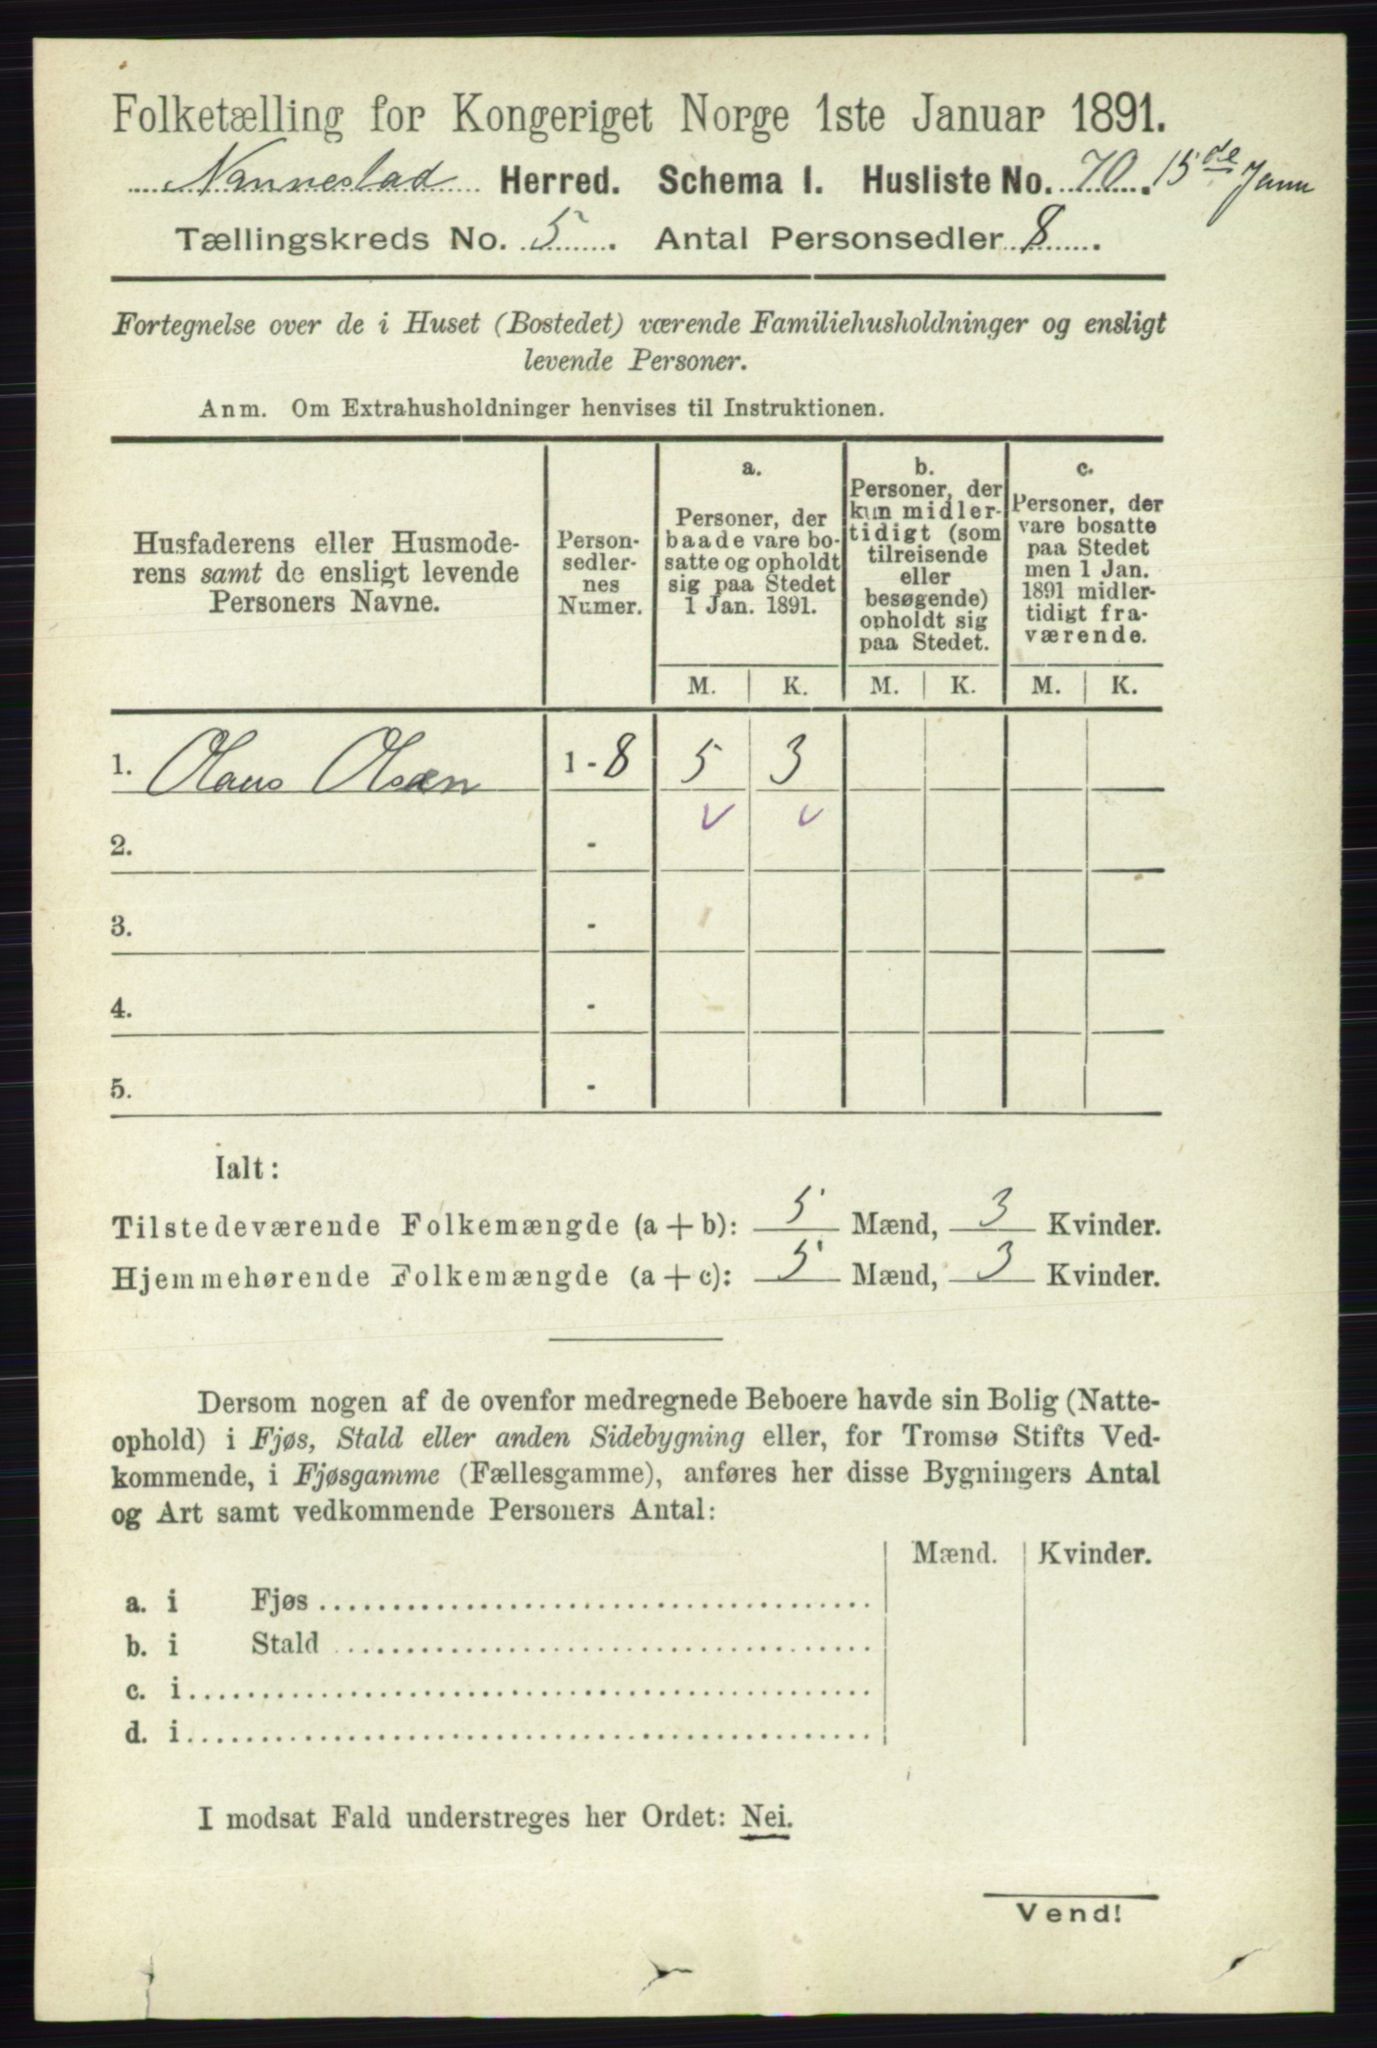 Folketælling for Kongeriget Norge 1ste Januar 1891.
Nannestad Herred. Schema I. Husliste No. 70. 15de Janu
Tællingskreds No. 5. Antal Personsedler 8.
Fortegnelse over de i Huset (Bostedet) værende Familiehusholdninger og ensligt
levende Personer.
Anm. Om Extrahusholdninger henvises til Instruktionen.
Husfaderens eller Husmode-
rens samt de ensligt levende
Personers Navne.
Person-
sedler-
nes
Numer.
a.
Personer, der
baade vare bo-
satte og opholdt
sig paa Stedet
1 Jan. 1891.
b.
Personer, der
kun midler-
tidigt (som
tilreisende
eller
besøgende)
opholdt sig
paa Stedet.
c.
Personer, der
vare bosatte
paa Stedet
men 1 Jan.
1891 midler-
tidigt fra-
værende.
M. K. M. K. M. K.
1. Olaus Olsen 1 - 8 5 3
2. -
3. -
4. -
5. -
Ialt:
Tilstedeværende Folkemængde (a + b): 5 Mænd, 3 Kvinder.
Hjemmehørende Folkemængde (a + c): 5 Mænd, 3 Kvinder.
Dersom nogen af de ovenfor medregnede Beboere havde sin Bolig (Natte-
ophold) i Fjøs, Stald eller anden Sidebygning eller, for Tromsø Stifts Ved-
kommende, i Fjøsgamme (Fællesgamme), anføres her disse Bygningers Antal
og Art samt vedkommende Personers Antal:
Mænd. Kvinder.
a. i Fjøs
b. i Stald
c. i
d. i
I modsat Fald understreges her Ordet: Nei.
Vend!